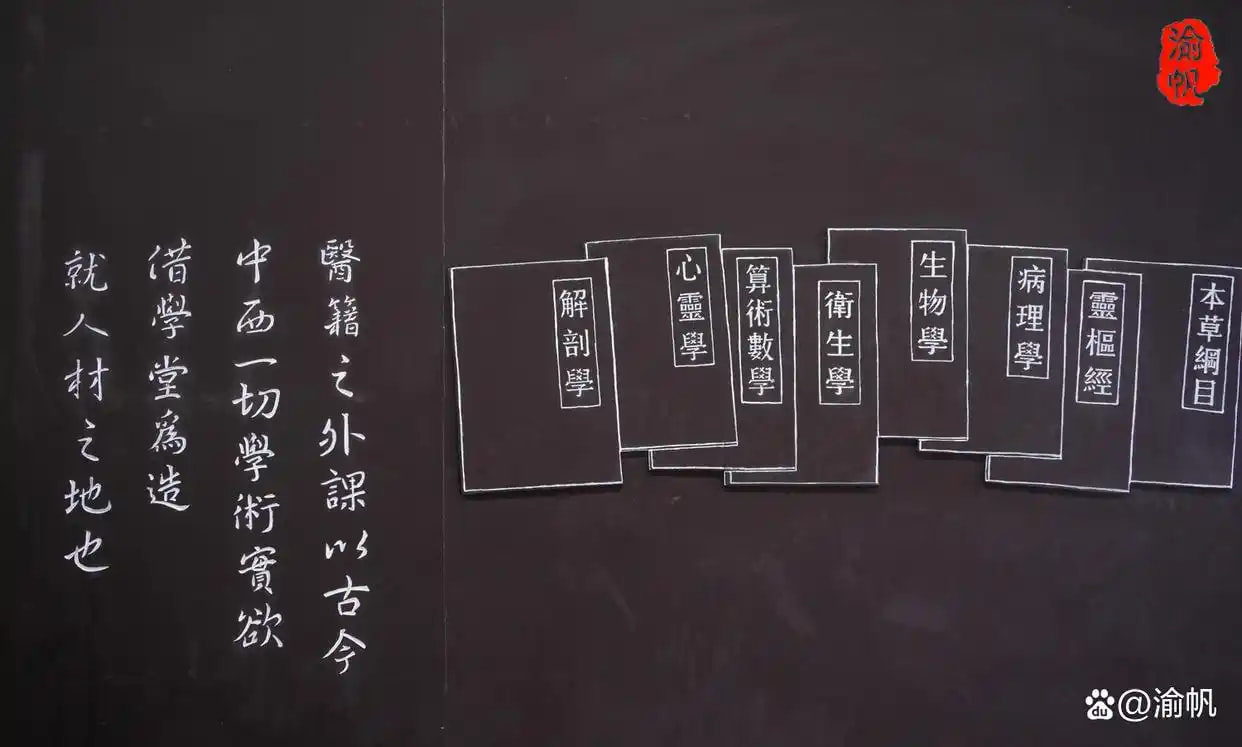 醫籍之外課以古今
中西一切學術實欲
借學堂爲造
就人材之地也
本草綱目
靈樞經
病理學
生物學
衛生學
算術數學
心靈學
解剖學
渝帆
du
@渝帆